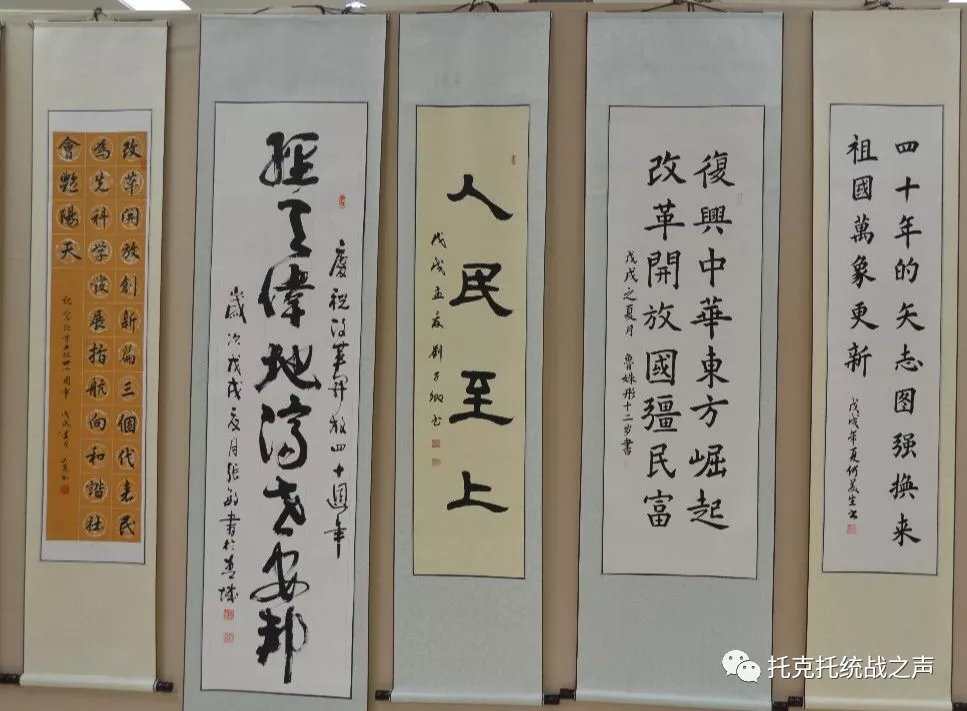 改革開放創新篇三個代表民
為先科学發展指航向和諧社
會艷陽天
纪念改革开放四十周年 戊戌
慶祝改革開放四十週年
經天緯地濟世安邦
歲次戊戌夏月張敏書於青城
人民至上
戊戌孟夏劉书
復興中華東方崛起
改革開放國疆民富
戊戌之夏月 魯姝彤十二岁書
四十年的矢志图强换来
祖國萬象更新
戊戌年夏何生书
托克托统战之声